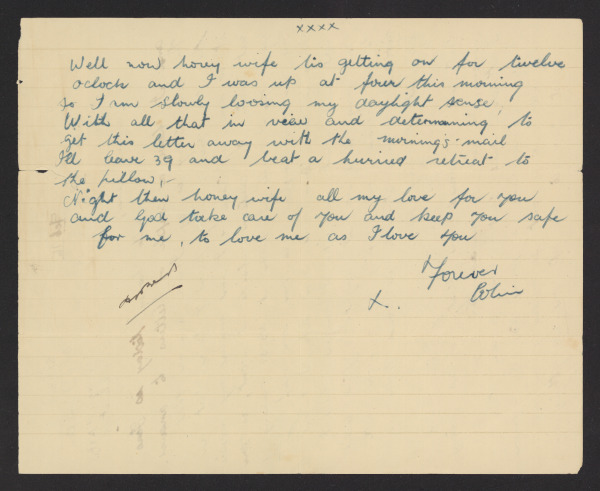 xxxx
Well now honey wife tis getting on for twelve
oclock and I was up at four this morning
so I am slowly loosing my daylight sense,
With all that in view and determaning to
get this letter away with the mornings mail
I'll leave 39 and beat a hurried retreat to
the pillow,
Night then honey wife all my love for you
and God take care of you and keep you safe
for me, to love me as I love you
Forever
Colin
X.